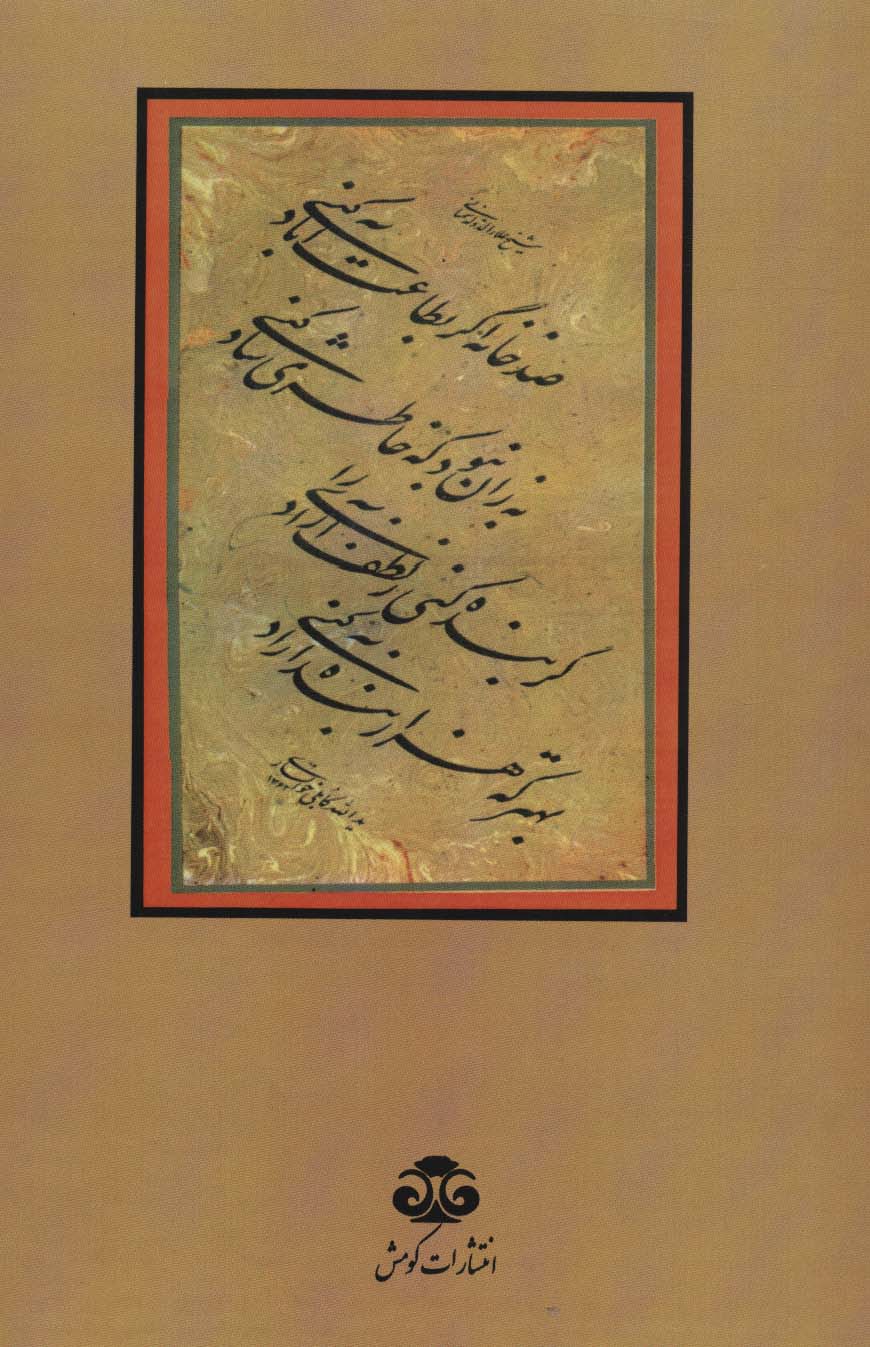 شیخ علاءالدوله سمنانی
صد خانه اگر بطاعت آباد کنی
به زان نبود که خاطری شاد کنی
گر بنده کنی ز لطف آزادی را
بهتر که هزار بنده آزاد کنی
یدالله کابلی خوانساری
انتشارات کومش